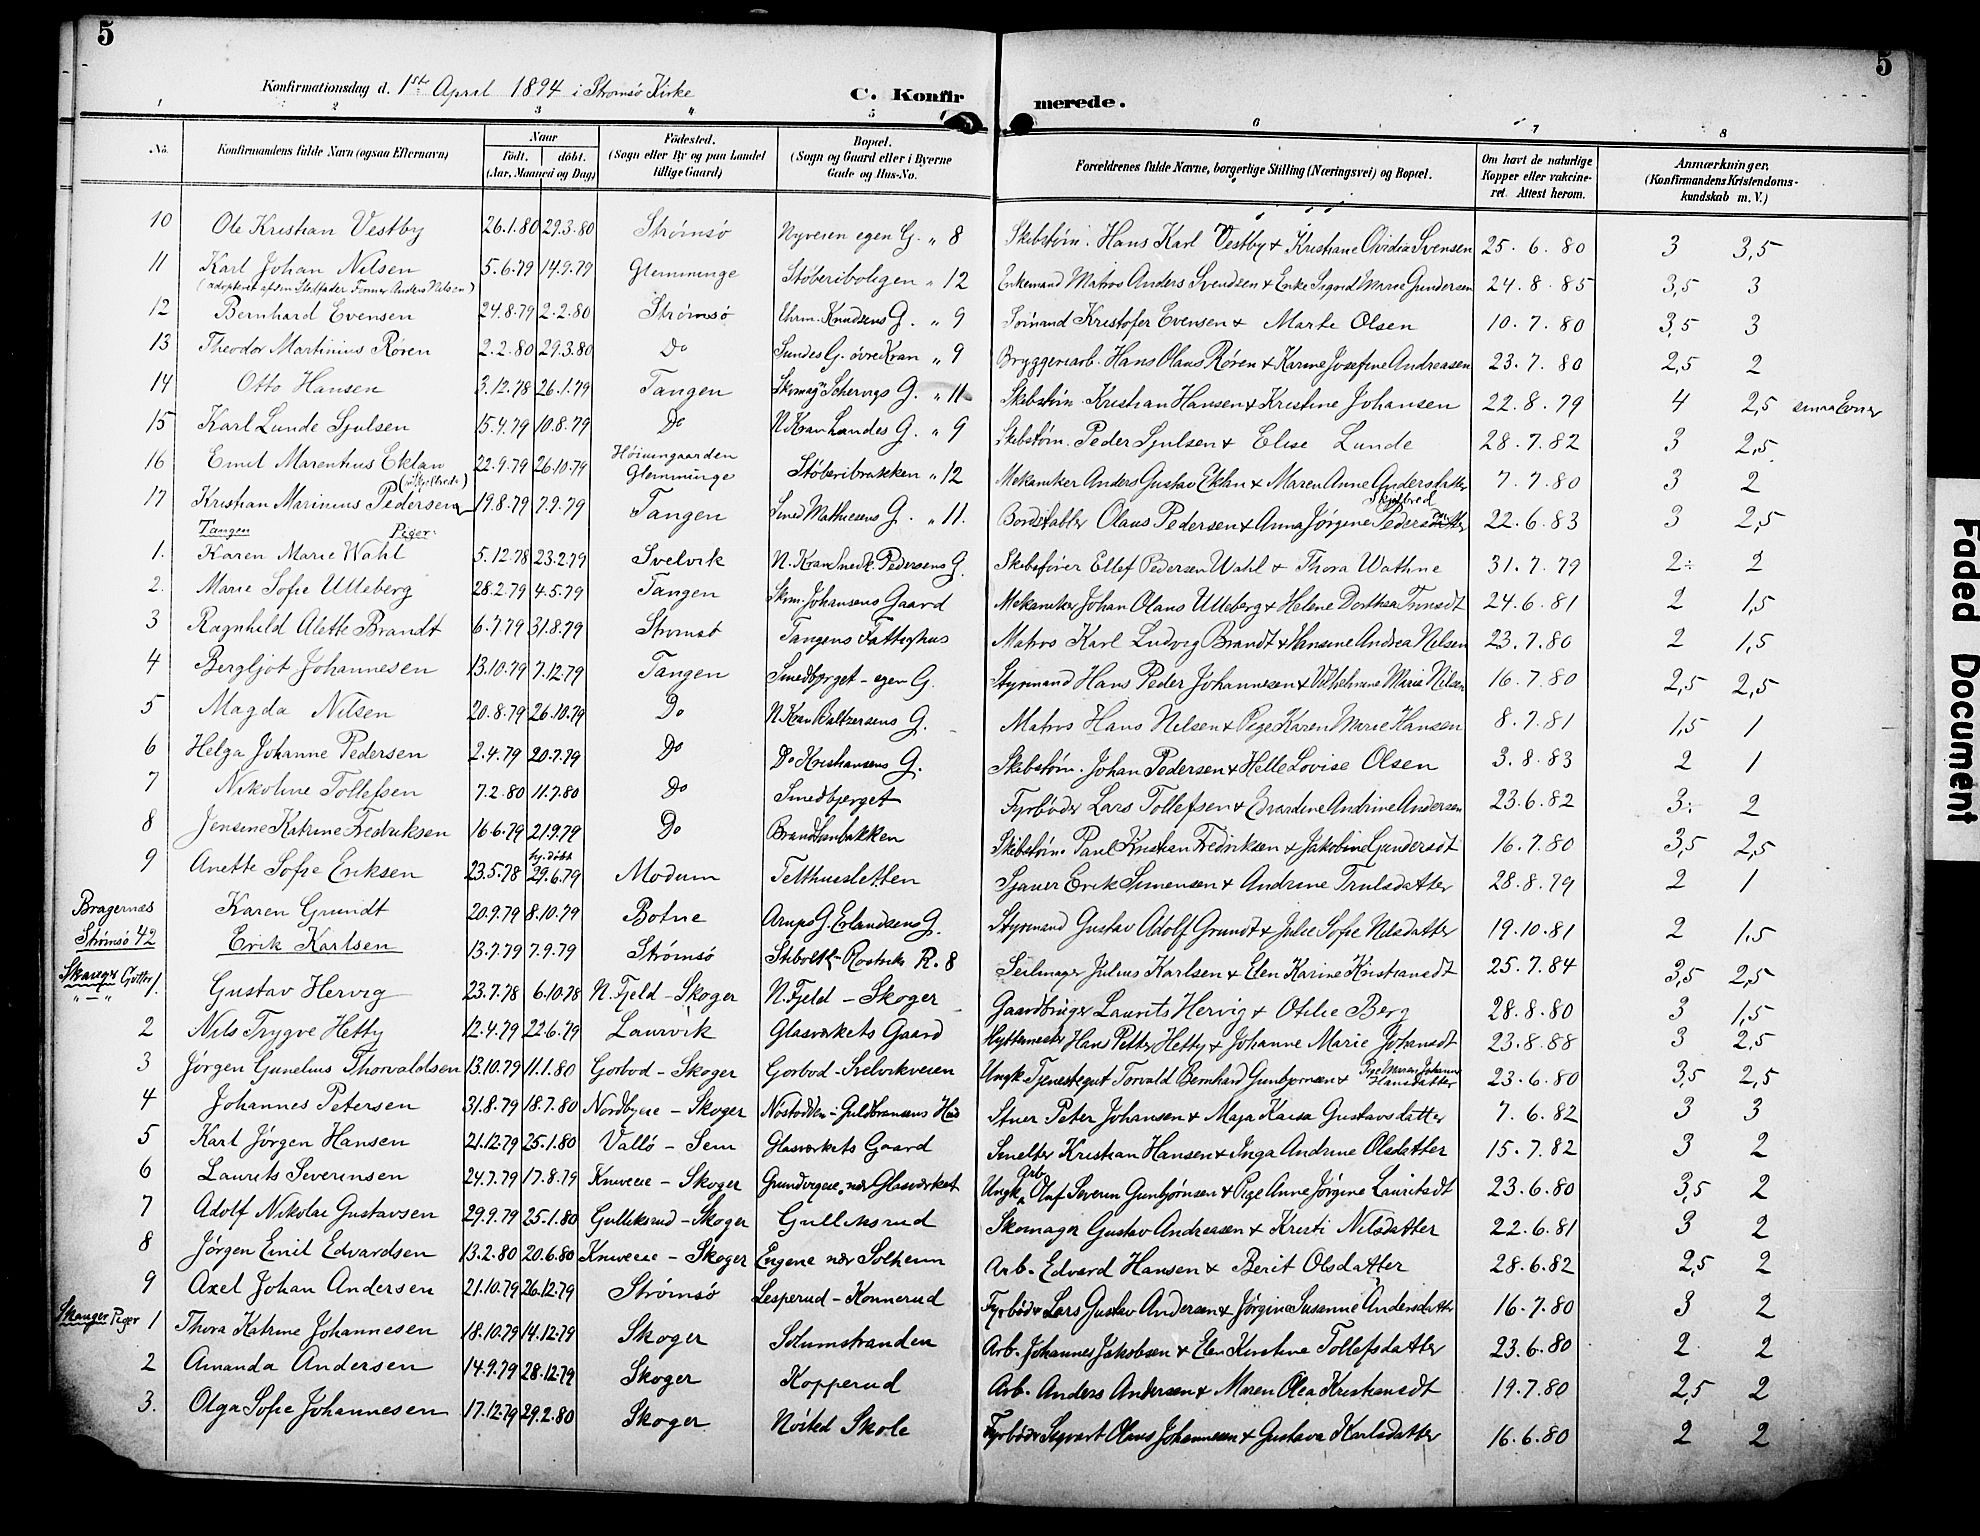 5
5
Konfirmationsdag d. 1st April 1894 i Strømsø Kirke
C. Konfirmerede.
1 2 3 4 5 6 7 8
No. Konfirmandens fulde Navn (ogsaa Efternavn) Naar født. døbt. (Aar, Maaned og Dag) Födested. (Sogn eller By og paa Landet tillige Gaard) Bopæl. (Sogn og Gaard eller i Byerne Gade og Hus-No. Forældrenes fulde Navne, borgerlige Stilling (Næringsvei) og Bopæl. Om havt de naturlige Kopper eller vakcineret. Attest herom. Anmærkninger. (Konfirmandens Kristendomskundskab m. V.)
10 Ole Kristian Vestby 26.1.80 29.3.80 Strømsø Nyveien egen G. " 8 Skibstøm. Hans Karl Vestby & Kristiane Ovidia Svensen 25.6.80 3 3,5
11 Karl Johan Nilsen 5.6.79 14.9.79 Glemminge Støberiboligen " 12 Enkemand Matros Anders Svendsen & Enke Sigrid Marie Gundersen 24.8.85 3,5 3
(adopteret af sin Stedfader Former Anders Nilsen)
12 Bernhard Evensen 24.8.79 2.2.80 Strømsø Uhrm. Knudsens G. " 9 Sømand Kristofer Evensen & Marte Olsen 10.7.80 3,5 3
13 Theodor Martinius Røren 2.2.80 29.3.80 Do Sundes G. övre Kran " 9 Bryggeriarb. Hans Olaus Røren & Karine Josefine Andreasen 23.7.80 2,5 2
14 Otto Hansen 3.12.78 26.1.79 Tangen Skomag. Schervigs G. " 11 Skibstøm. Kristian Hansen & Kristine Johansen 22.8.79 4 2,5 smaa Evner
15 Karl Lunde Sjulsen 15.4.79 10.8.79 Do N. Kran Landes G. " 9 Skibstøm. Peder Sjulsen & Elise Lunde 28.7.82 3 2,5
16 Emil Marentius Eklan 22.9.79 26.10.79 Høiumgaarden Glemminge Støberibrakken " 12 Mekaniker Anders Gustav Eklan & Maren Anne Andersdatter 7.7.80 3 2
17 Kristian Marinius Pedersen 19.8.79 7.9.79 Tangen Smed Mathiesens G. " 11. Bordstabler Olaus Pedersen & Anna Jørgine Pedersdatter 22.6.83 3 2,5
Tangen Piger:
1. Karen Marie Wahl 5.12.78 23.2.79 Svelvik N. Kran Snedk. Pedersens G. Skibsfører Ellef Pedersen Wahl & Thora Wathne 31.7.79 2÷ 2
2. Marie Sofie Ulleberg 28.2.79 4.5.79 Tangen Skom. Johansens Gaard Mekaniker Johan Olaus Ulleberg & Helene Dorthea 24.6.81 2 1,5
3 Ragnhild Alette Brandt 6.7.79 31.8.79 Strømsø Tangens Fattighus Matros Karl Ludvig Brandt & Hansine Andrea Nilsen 23.7.80 2 1,5
4 Bergljot Johannesen 13.10.79 7.12.79 Tangen Smedbjerget - egen G. Styrmand Hans Peder Johannesen & Vilhelmine Marie Nilsen 16.7.80 2,5 2,5
5 Magda Nilsen 20.8.79 26.10.79 Do N. Kran Baltzersens G. Matros Hans Nilsen & Pige Karen Marie Hansen 8.7.81 1,5 1
6 Helga Johanne Pedersen 2.4.79 20.7.79 Do Do Kristiansens G. Skibstøm. Johan Pedersen & Helle Lovise Olsen 3.8.83 2 1
7 Nikoline Tollefsen 7.2.80 11.7.80 Do Smedbjerget Fyrbøder Lars Tollefsen & Evardine Andrine Andersen 23.6.82 3÷ 2
8 Jensine Katrine Fredriksen 16.6.79 21.9.79 Do Brandtenbakken Skibstøm. Paul Kristian Fredriksen & Jakobine Gundersdt 16.7.80 3,5 2,5
9 Anette Sofie Eriksen 23.5.78 hj. døbt 29.6.79 Modum Telthusletten Sjauer Erik Simensen & Andrine Trulsdatter 28.8.79 2 1
Bragernes Karen Grundt 20.9.79 8.10.79 Botne Arups G. Erlandsens G. Styrmand Gustav Adolf Grundt & Julie Sofie Nilsdatter 19.10.81 2 1,5
Strømsø 42 Erik Karlsen 13.7.79 7.9.79 Strømsø R. 8 Seilmager Julius Karlsen & Elen Karine Kristiansdt 25.7.84 3,5 2,5
Skauger Gutter 1. Gustav Hervig 23.7.78 6.10.78 N. Fjeld - Skoger N. Fjeld - Skoger Gaardbruger Laurits Hervig & Otilie Berg 28.8.80 3 1,5
2 Nils Trygve Hetty 12.4.79 22.6.79 Laurvik Glasværkets Gaard Hyttemester Hans Petter Hetty & Johanne Marie Johansdt 23.8.88 3 2,5
3 Jørgen Gunelius Thorvaldsen 13.10.79 11.1.80 Gorbod - Skoger Gorbod - Svelvikveien Ungk. Tjenestegut Torvald Bernhard Gunbjørnsen & Pige Maren Johanne Hansdatter 23.6.80 3,5 2,5
4 Johannes Petersen 31.8.79 18.7.80 Nordbyeie - Skoger Nøstodden - Guldbransens Hus Stuer Peter Johansen & Maja Kaisa Gustavsdatter 7.6.82 3 3
5 Karl Jørgen Hansen 21.12.79 25.1.80 Vallø - Sem Glasværkets Gaard Smelter Kristian Hansen & Inga Andrine Olsdatter 15.7.82 3 2
6 Laurits Severinsen 24.7.79 17.8.79 Kniveeie - Skoger Grundvigeie nær Glasværket Ungk. Arb. Oluf Severin Gunbjørnsen & Pige Anne Jørgine Lauritsdt 23.6.80 3,5 2
7 Adolf Nikolai Gustavsen 29.9.79 25.1.80 Gulliksrud - Skoger Gulliksrud Skomager Gustav Andreasen & Kristi Nilsdatter 22.6.81 3 2
8 Jørgen Emil Edvardsen 13.2.80 20.6.80 Kniveeie - Skoger Engene nær Solheim Arb. Edvard Hansen & Berit Olsdatter 28.6.82 2,5 2
9 Axel Johan Andersen 21.10.79 26.12.79 Strømsø Lesperud - Konnerud Fyrbøder Lars Gustav Andersen & Jørgine Susanne Andersdatter 16.7.80 3 2
Skauger Piger 1 Thora Katrine Johannesen 18.10.79 14.12.79 Skoger Solumstranden Arb. Johannes Jakobsen & Elen Kirstine Tollefsdatter 23.6.80 2 2
2 Amanda Andersen 14.9.79 28.12.79 Skoger Kopperud Arb. Anders Andersen & Maren Olea Kristiansdt 19.7.80 2,5 2
3. Olga Sofie Johannesen 17.12.79 29.2.80 Skoger Nøsted Skole Fyrbøder Sigvart Olaus Johannesen & Gustava Karlsdatter 16.6.80 2 2
Faded Document